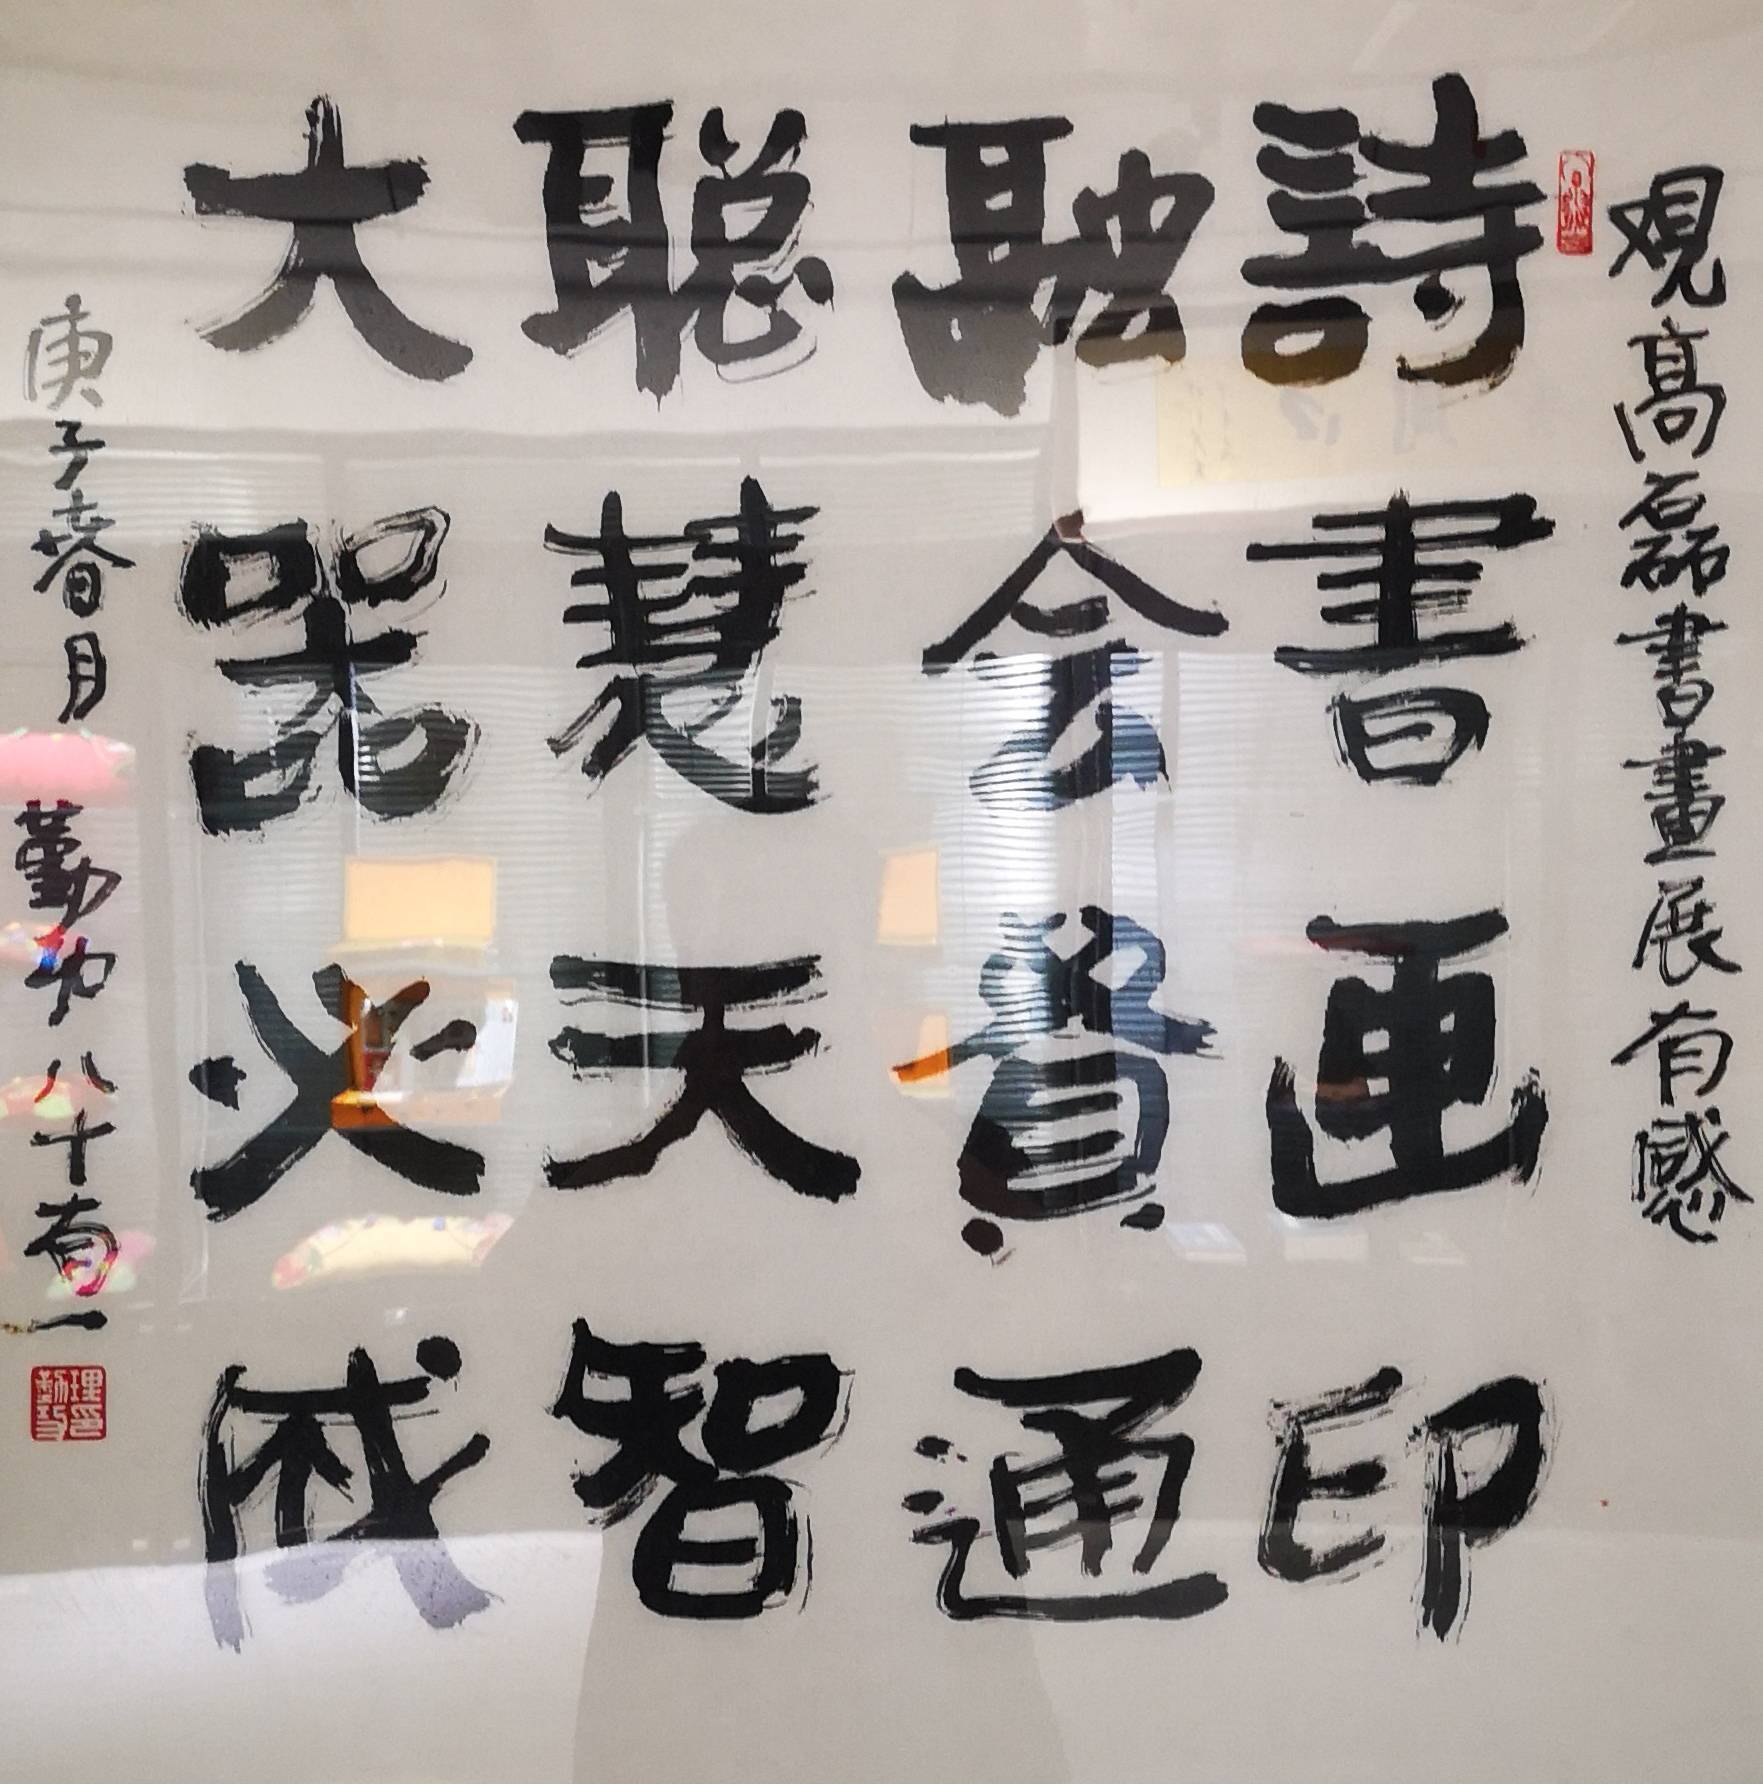 观高磊書畫展有感
詩書画印
融会貫通
聪慧天智
大器必成
庚子春月 勤 八十有一